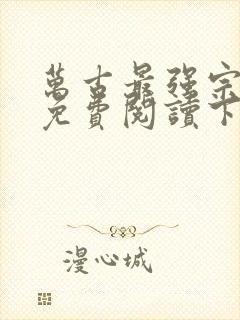 萬古最强宗
免費閱讀下
漫心城